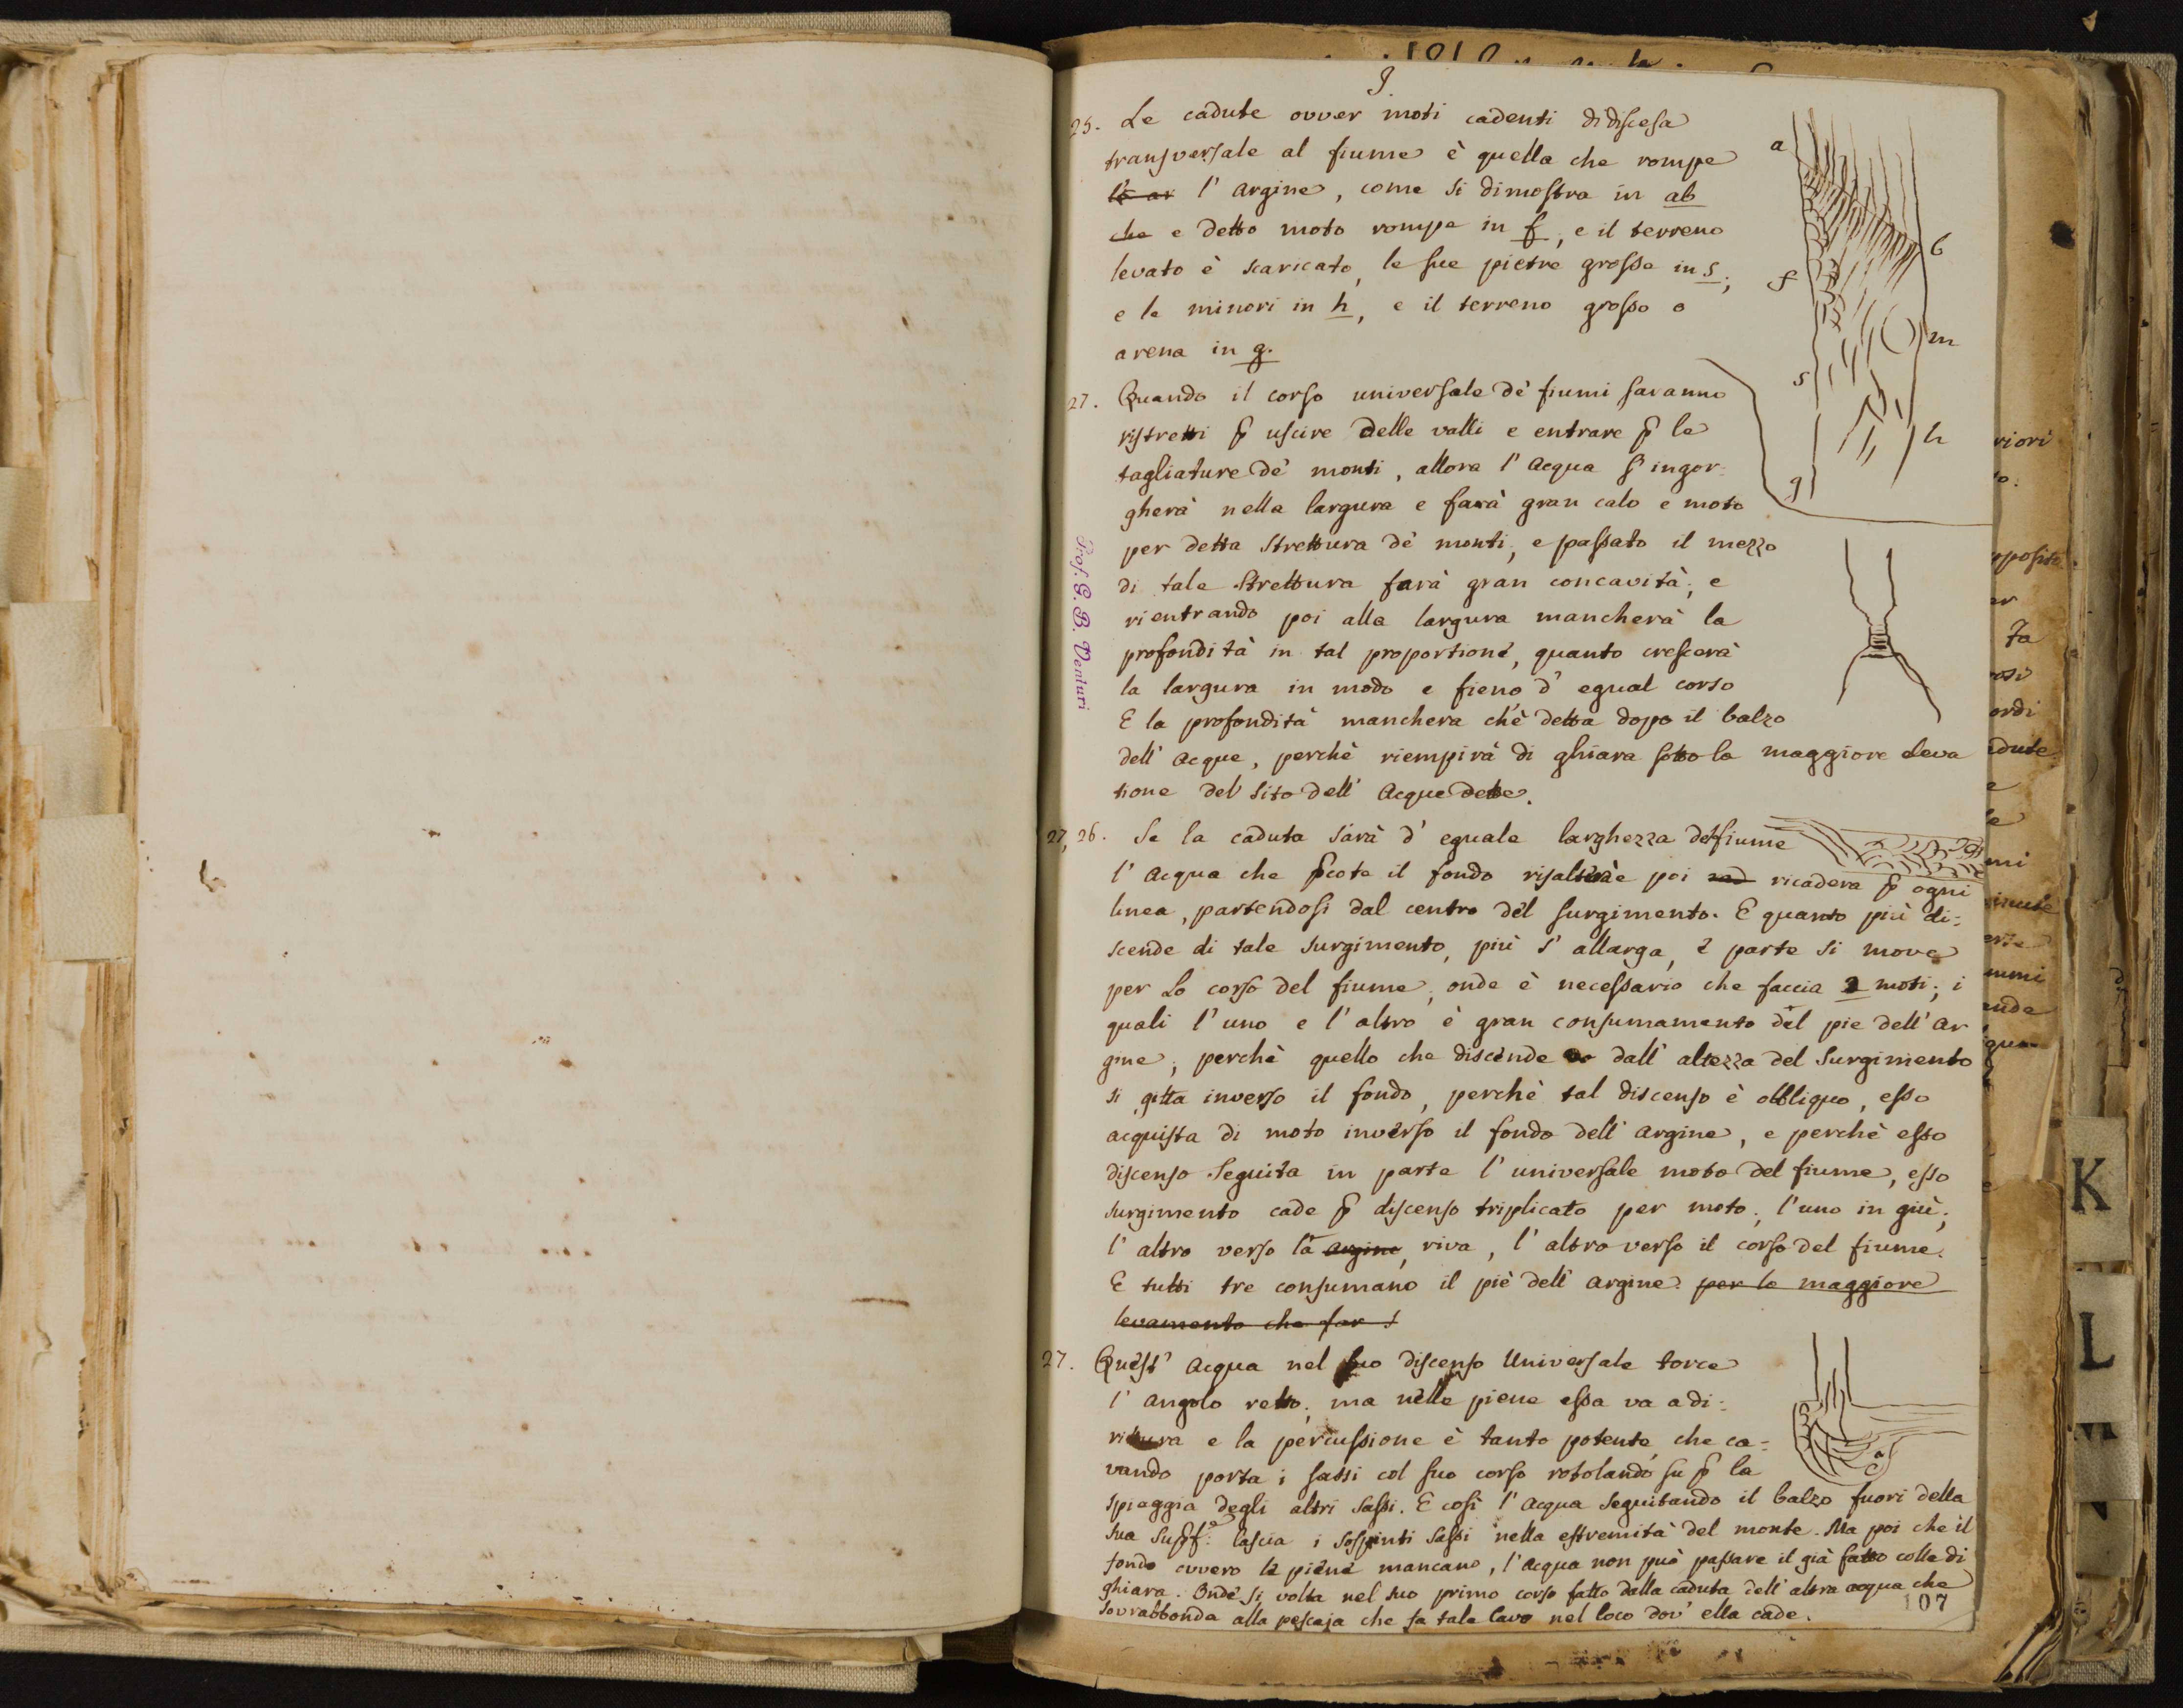 I.
25. Le cadute ovver moti cadenti di discesa
transversale al fiume è quella che rompe
l'argine, come si dimostra in ab
che e detto moto rompe in f, e il terreno
levato è scaricato, le sue pietre grosse in s;
e le minori in h, e il terreno grosso o
arena in g.
a
b
f
m
s
h
g
27. Quando il corso universale de' fiumi saranno
ristretti ꝑ uscire delle valli e entrare ꝑ le
tagliature de' monti, allora l'acqua s'ingor-
gherà nella largura e farà gran calo e moto
per detta strettura de' monti, e passato il mezzo
di tale strettura farà gran concavità; e
rientrando poi alla largura mancherà la
profondità in tal proportione, quanto crescerà
la largura in modo e fieno d'egual corso
E la profondità manchera ch'è detta dopo il balzo
dell'acque, perchè riempirà di ghiara sotto la maggiore eleva
tione del sito dell'acque dette.
27, 26. Se la caduta sarà d'eguale larghezza del fiume
l'acqua che ꝑcote il fondo risalterà e poi ricadera ꝑ ogni
linea, partendosi dal centro del surgimento. E quanto più di=
scende di tale surgimento, più s'allarga, e parte si move
per lo corso del fiume, onde è necessario che faccia 2 moti; i
quali l'uno e l'altro è gran consumamento del pie dell'ar
gine; perchè quello che discende dall'altezza del surgimento
si gitta inverso il fondo, perchè tal discenso è obbliquo, esso
acquista di moto inverso il fondo dell'argine, e perchè esso
discenso seguita in parte l'universale moto del fiume, esso
surgimento cade ꝑ discenso triplicato per moto; l'uno in giù;
l'altro verso la argine, riva, l'altro verso il corso del fiume.
E tutti tre consumano il piè dell'argine. per la maggiore
levamento che far s
27. Quest'acqua nel suo discenso universale torce
l'angolo retto; ma nelle piene essa va a di=
rittura e la percussione è tanto potente, che ca=
vando porta i sassi col suo corso rotolando su ꝑ la
spiaggia degli altri sassi. E così l'acqua seguitando il balzo fuori della
sua supf.e lascia i sospinti sassi nella estremità del monte. Ma poi che il
fondo ovvero le piene mancano, l'acqua non può passare il già fatto colle di
ghiara. Onde si volta nel suo primo corso fatto dalla caduta dell'altra acqua che
sovrabbonda alla pescaja che fa tale cavo nel loco dov'ella cade.
107
Prof. G. B. Venturi
K
L